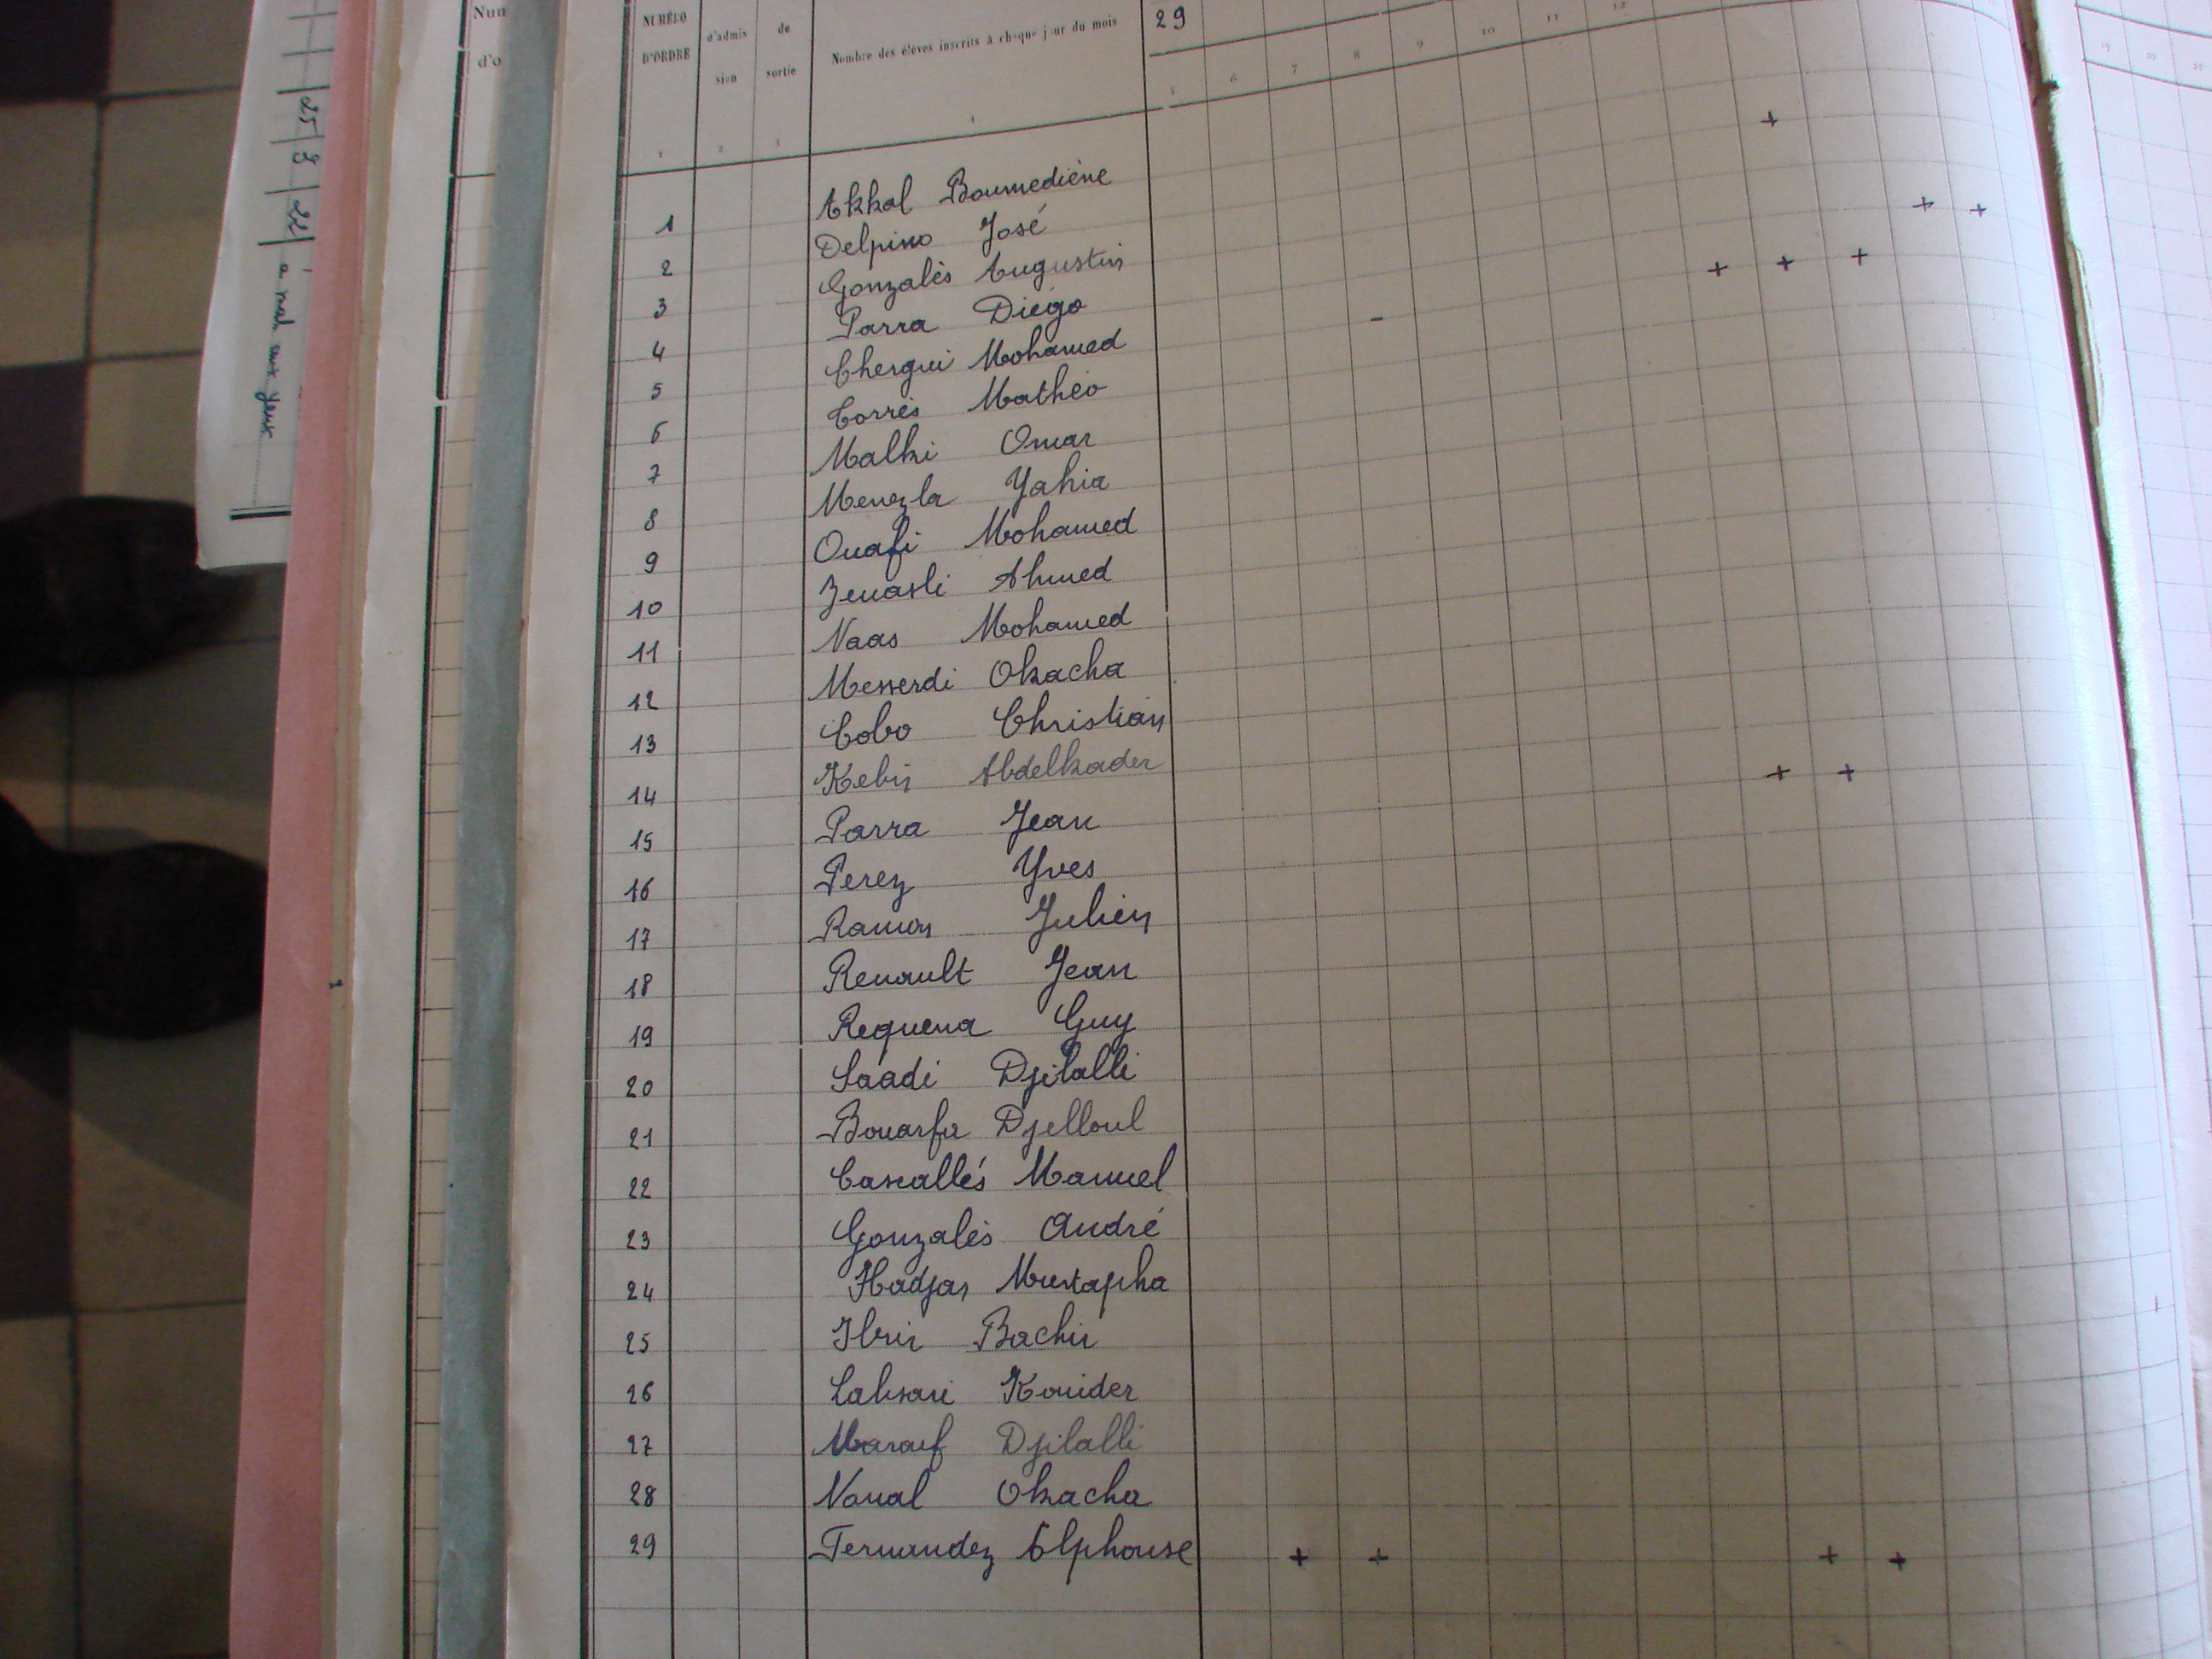 25 | 3 | 22 | a mal aux yeux
Num
d'o
NUMÉRO D'ORDRE
d'admission
de sortie
Nombre des élèves inscrits à chaque jour du mois
29
1 2 3 4 5 6 7 8 9 10 11 12
19
1 Akkal Boumediène
2 Delpino José
3 Gonzalès Augustin
4 Parra Diégo
5 Chergui Mohamed
6 Torrès Mathéo
7 Malki Omar
8 Menezla Yahia
9 Ouafi Mohamed
10 Zenasli Ahmed
11 Naas Mohamed
12 Messerdi Okacha
13 Cobo Christian
14 Kebir Abdelkader
15 Parra Jean
16 Perez Yves
17 Ramon Julien
18 Renault Jean
19 Requena Guy
20 Saadi Djilalli
21 Bouarfa Djelloul
22 Cascallés Manuel
23 Gonzalès André
24 Hadjar Mustapha
25 Ibrir Bachir
26 Lahsari Kouider
27 Maraef Djilalli
28 Noual Okacha
29 Fernandez Alphonse